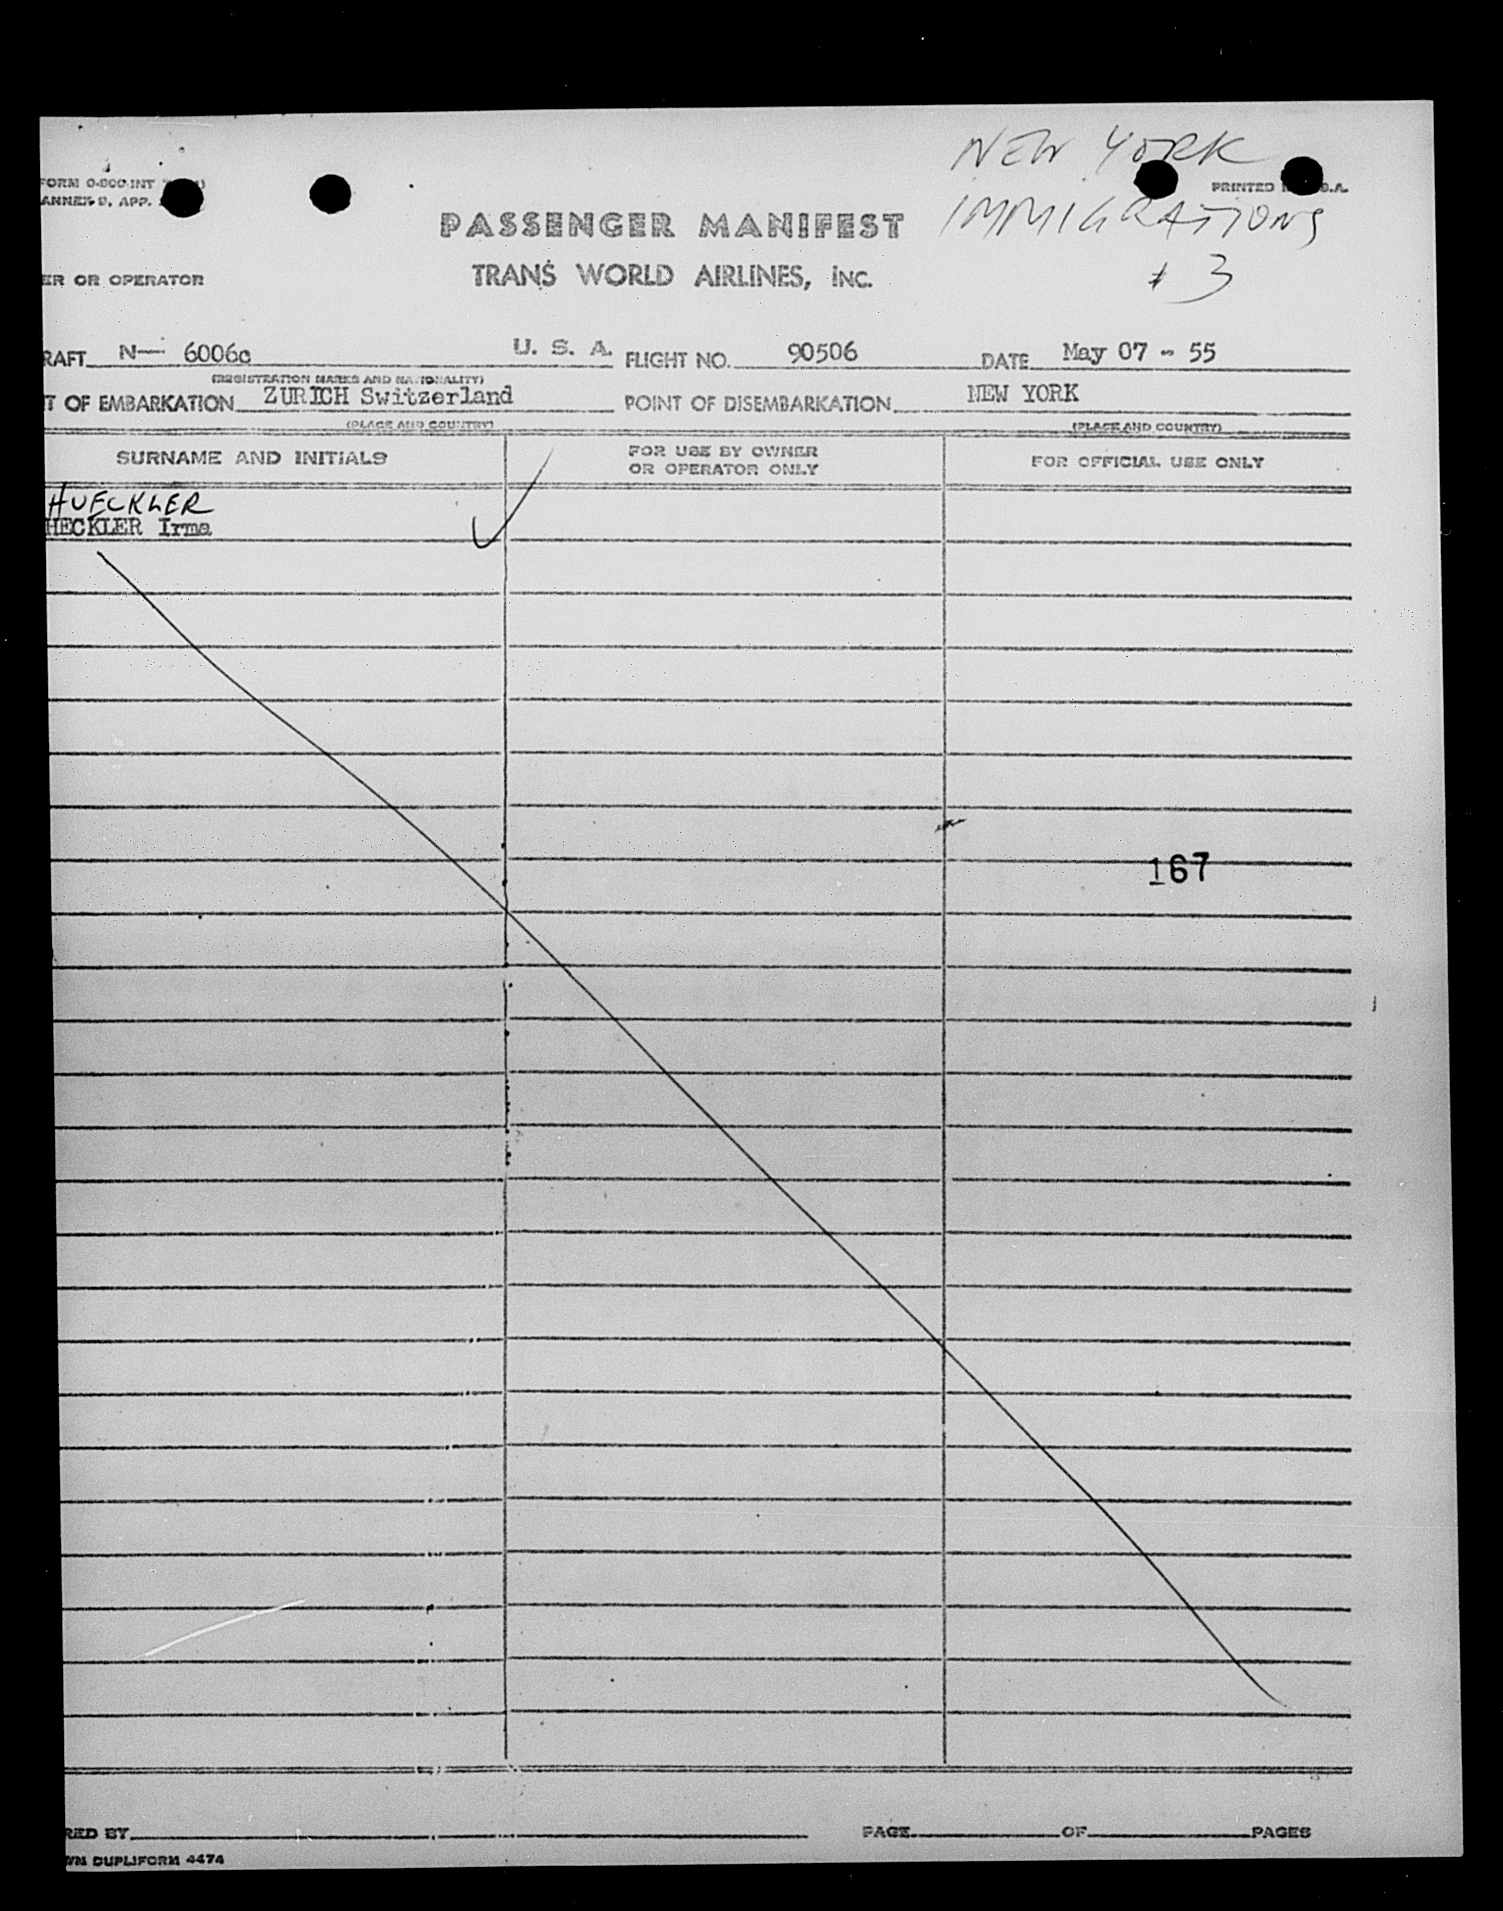 NEW YORK
FORM O-800-INT
PRINTED U.S.A.
ANNEX 9, APP.
IMMIGRATIONS
PASSENGER MANIFEST
# 3
ER OR OPERATOR
TRANS WORLD AIRLINES, INC.
RAFT N— 6006c U. S. A. FLIGHT NO. 90506 DATE May 07 - 55
(REGISTRATION MARKS AND NATIONALITY)
T OF EMBARKATION ZURICH Switzerland POINT OF DISEMBARKATION NEW YORK
(PLACE AND COUNTRY) (PLACE AND COUNTRY)
SURNAME AND INITIALS FOR USE BY OWNER
OR OPERATOR ONLY FOR OFFICIAL USE ONLY
HUECKLER
HECKLER Irma
167
RED BY PAGE OF PAGES
WN DUPLIFORM 4474